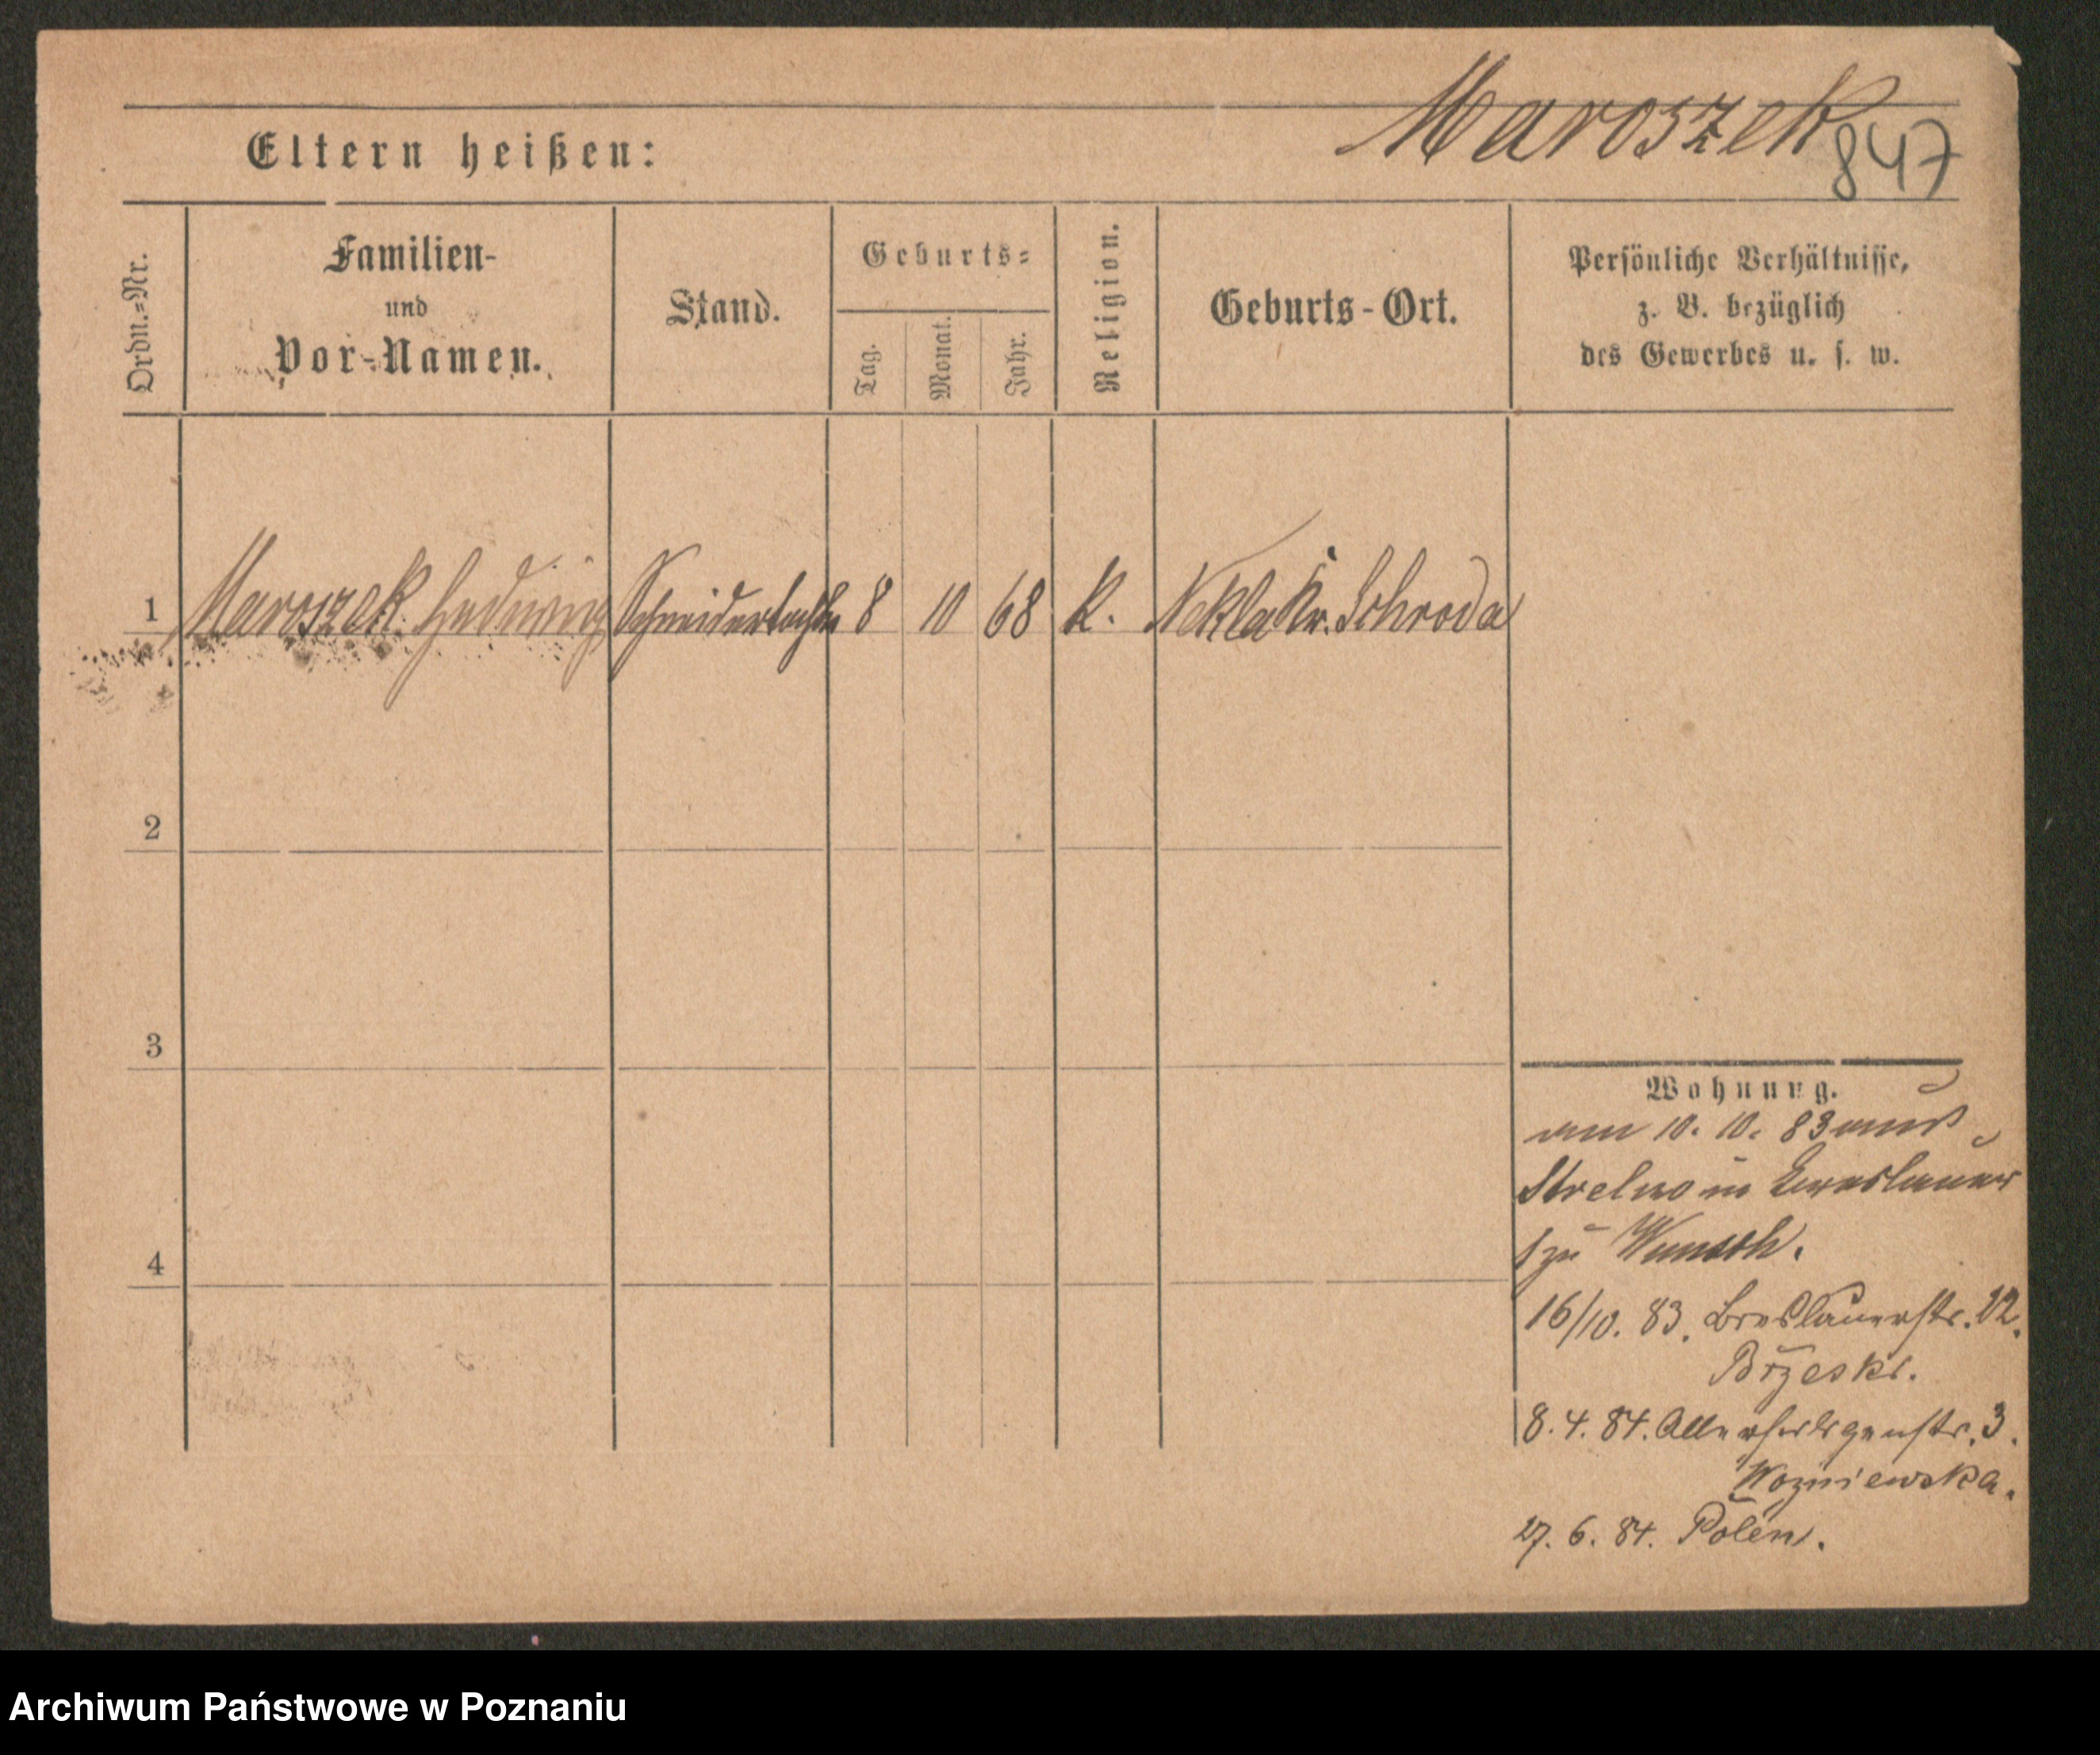 Maroszek
847
Eltern heißen:
Ordn.=Nr.
Familien-
und
Vor-Namen.
Stand.
Geburts=
Tag.
Monat.
Jahr.
Religion.
Geburts-Ort.
Persönliche Verhältnisse,
z. B. bezüglich
des Gewerbes u. s. w.
1 Maroszek Hedwig Schneidertochter 8 10 68 K. Nekla Kr. Schroda
2
3
4
Wohnung.
am 10. 10. 83 aus
Strelno in
zu Wunsch.
16/10. 83. Breslauerstr. 12.
Brzeski.
8. 4. 84. Allerheiligenstr. 3.
Wozniewska.
27. 6. 84. Polen.
Archiwum Państwowe w Poznaniu